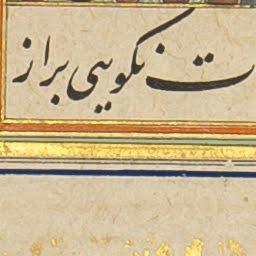 ت نکویی براز